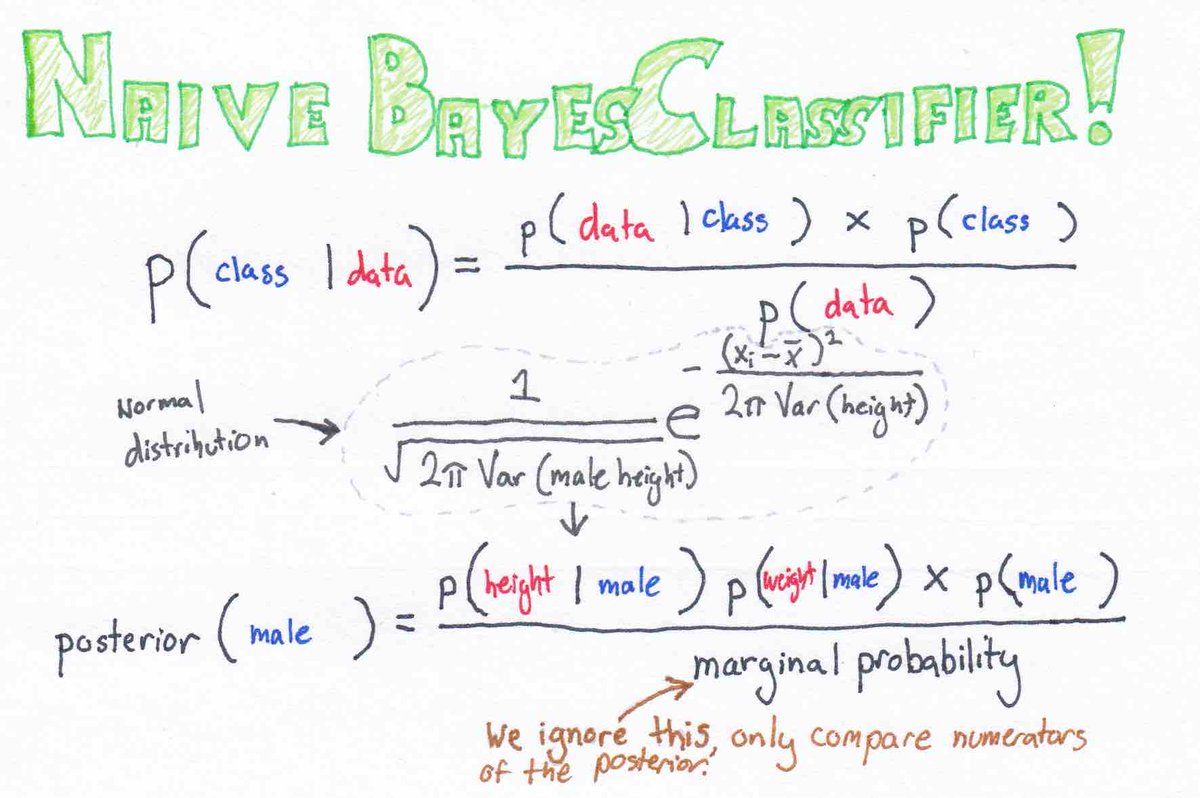 NAIVE BAYES CLASSIFIER!
p(class | data) = p(data | class) × p(class) / p(data)
Normal
distribution
1 / √2π Var (male height) e - (xᵢ - x̄)² / 2π Var (height)
posterior (male) = p(height | male) p(weight | male) × p(male) / marginal probability
We ignore this, only compare numerators
of the posterior.